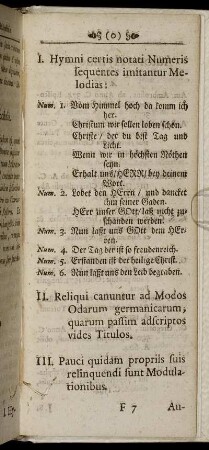 (o)
I. Hymni certis notati Numeris
sequentes imitantur Me-
lodias:
Num. 1. Vom Himmel hoch da komm ich
her.
Christum wir sollen loben schon.
Christe, der du bist Tag und
Licht.
Wenn wir in höchsten Nöthen
seyn.
Erhalt uns, HERR, bey deinem
Wort.
Num. 2. Lobet den HErrn, und dancket
ihm seiner Gaben.
HErr unser GOtt, laß nicht zu-
schanden werden.
Num. 3. Nun laßt uns GOtt dem HEr-
ren.
Num. 4. Der Tag der ist so freudenreich.
Num. 5. Erstanden ist der heilige Christ.
Num. 6. Nun laßt uns den Leib begraben.
II. Reliqui canuntur ad Modos
Odarum germanicarum,
quarum passim adscriptos
vides Titulos.
III. Pauci quidam propriis suis
relinquendi sunt Modula-
tionibus.
F 7 Au-